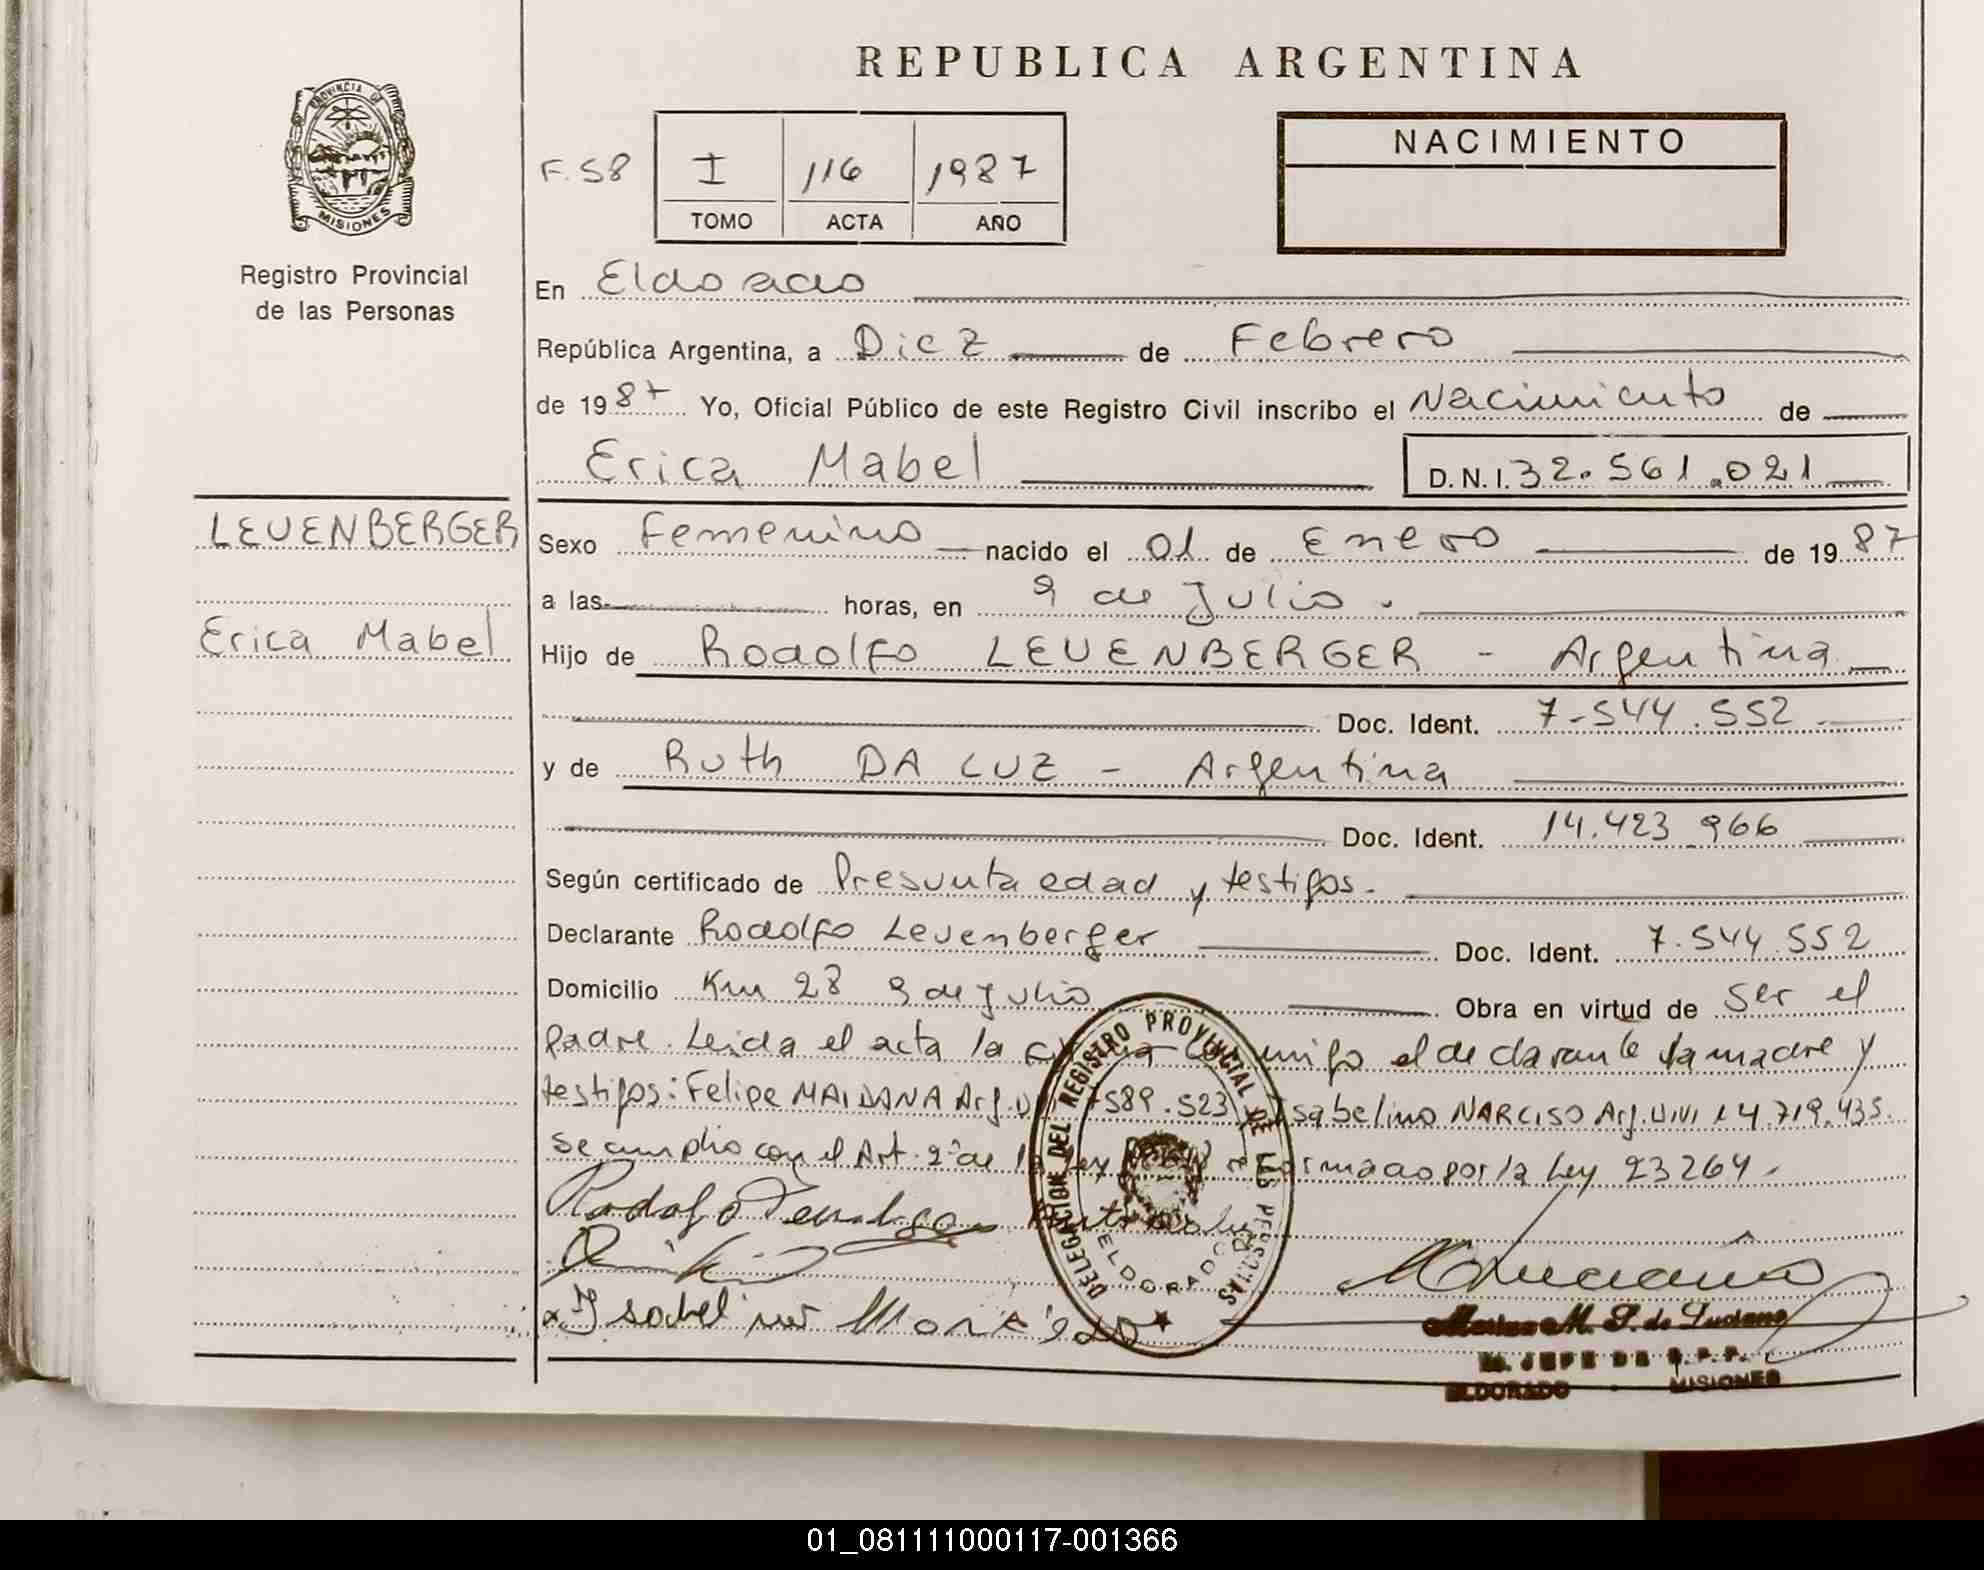 REPUBLICA ARGENTINA
PROVINCIA DE
MISIONES
Registro Provincial
de las Personas
F. 58
I 116 1987
TOMO ACTA AÑO
NACIMIENTO
En Eldorado
República Argentina, a Diez de Febrero
de 1987 Yo, Oficial Público de este Registro Civil inscribo el Nacimiento de
Erica Mabel D.N.I. 32.561.021
LEUENBERGER
Erica Mabel
Sexo Femenino nacido el 01 de Enero de 1987
a las horas, en 9 de Julio.
Hijo de Rodolfo LEUENBERGER - Argentina
Doc. Ident. 7.544.552
y de Ruth DA LUZ - Argentina
Doc. Ident. 14.423.966
Según certificado de Presunta edad y testigos.
Declarante Rodolfo Leuenberger Doc. Ident. 7.544.552
Domicilio Km 28 9 de Julio Obra en virtud de ser el
padre. Leida el acta la conmigo el declarante la madre y
testigos: Felipe MAIDANA Arg. 589.523 Isabelino NARCISO Arg. DNI 14.719.435.
Se cumplio con el Art. 2º de la Ley reformado por la Ley 23264.
Rodolfo
Isabelino
DELEGACION DEL REGISTRO PROVINCIAL DE LAS PERSONAS
ELDORADO
M. S. de Luciano
JEFE DE R.P.P.
ELDORADO - MISIONES
01_081111000117-001366